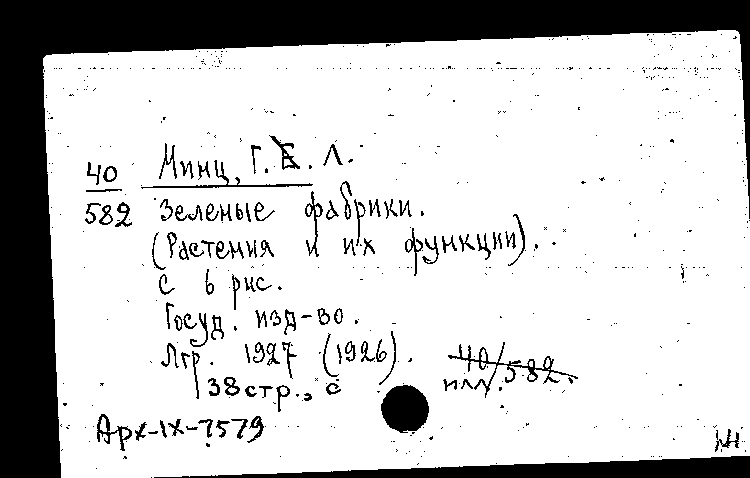 40 Минц, Г. Л.
582 Зеленые фабрики.
(Растения и их функции).
С 6 рис.
Госуд. изд-во.
Лгр. 1927 (1926). 40/582.
38 стр., с илл.
Арх-IX-7579